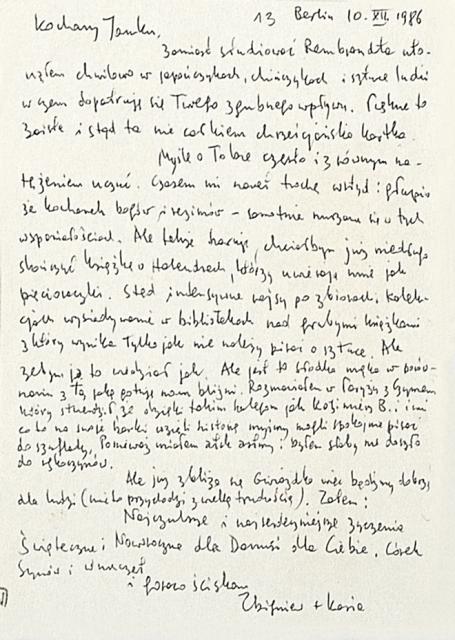 13 Berlin 10.XII.1986
Kochany Janku,
Zamiast studiować Rembrandta uto-
nąłem chwilowo w japończykach, chińczykach i sztuce Indii
w czem dopatruję się Twego zgubnego wpływu. Piękne to
zaiste i stąd ta nie całkiem chrześcijańska kartka.
Myślę o Tobie często i z równym na-
tężeniem uczuć. Czasem mi nawet trochę wstyd i głupio
że kochanek bogów i reżimów – samotnie nurzam się w tych
wspaniałościach. Ale także haruję, chciałbym już niedługo
skończyć książkę o Holendrach, którzy mnie jak
pięcioraczki. Stąd intensywne rajzy po zbiorach, kolek-
cjach wysiadywanie w bibliotekach nad grubymi książkami
z których wynika tylko jak nie należy pisać o sztuce. Ale
żebym ja to wiedział jak. Ale jest to słodka męka w porów-
naniu z tą jaką gotują nam bliźni. Rozmawiałem w Paryżu z
który stwierdził że dzięki takim kolegom jak Kazimierz B. i inni
co to na swoje barki wzięli historię myśmy mogli spokojnie pisać
do szuflady. Ponieważ miałem atak astmy i byłem słaby nie doszło
do rękoczynów.
Ale już zbliża się Gwiazdka więc bądźmy dobrzy
dla ludzi (mnie to przychodzi z wielką trudnością). Zatem:
Najczulsze i najserdeczniejsze życzenia
Świąteczne i Noworoczne dla Danusi dla Ciebie, Córek
Synów i Wnucząt
i gorąco ściskam
Zbigniew + Kasia